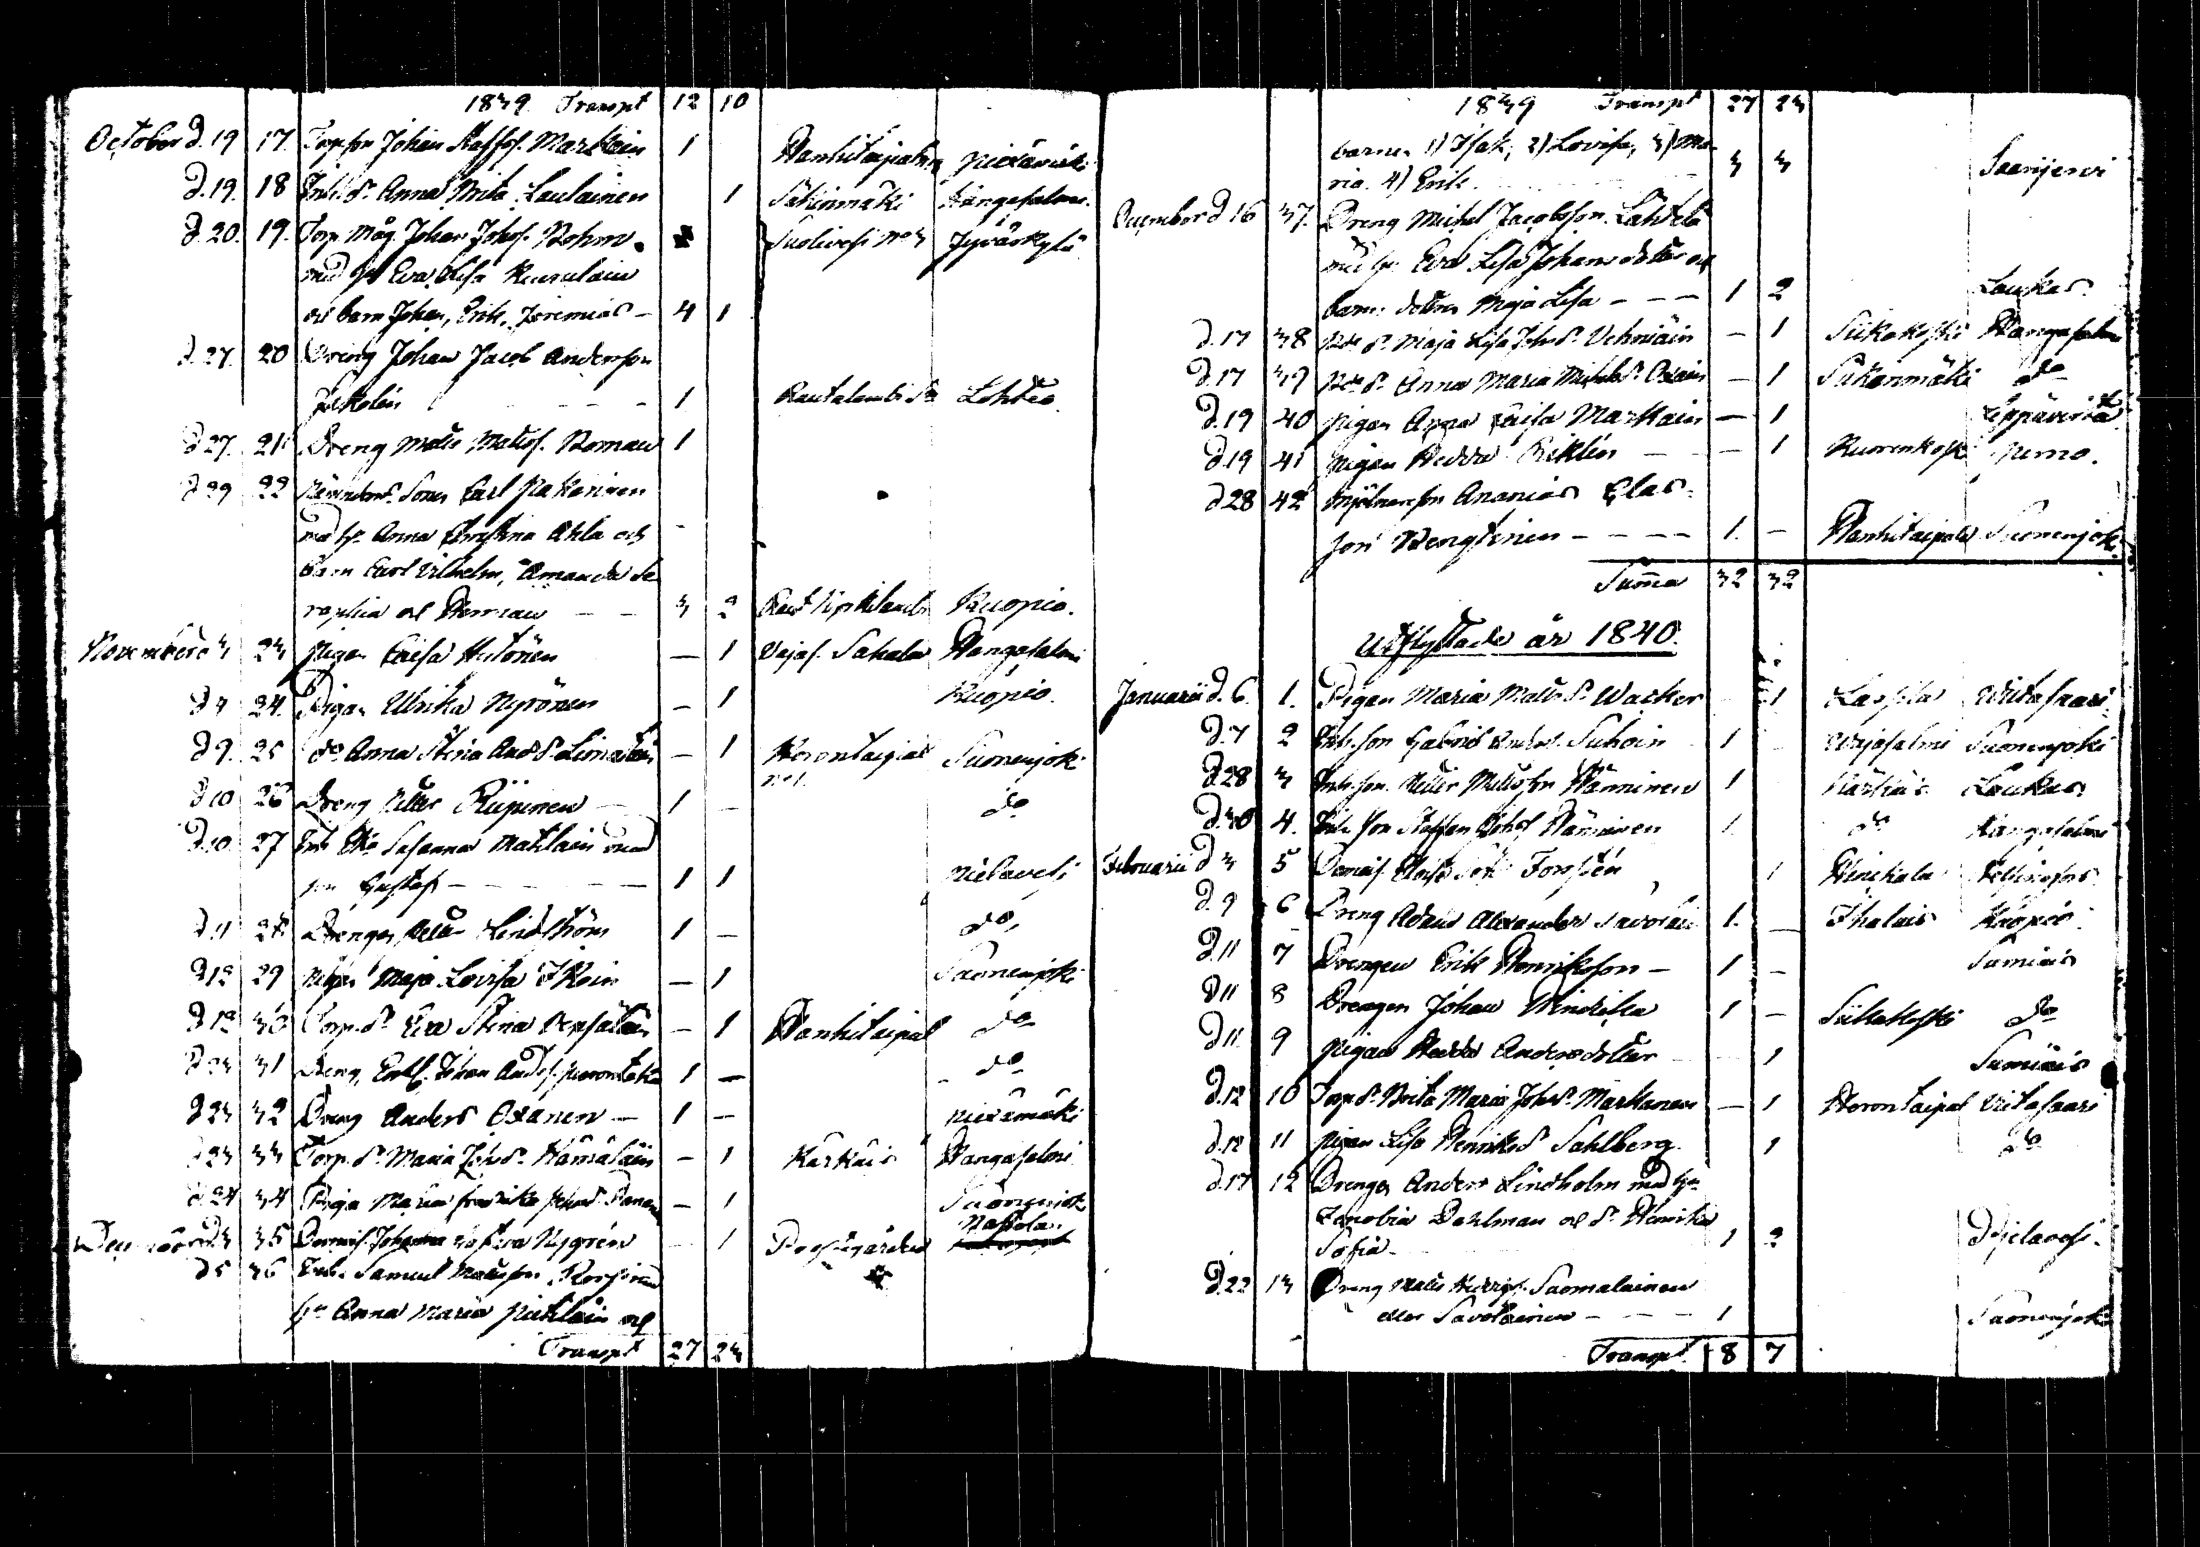 1839 Transpt 12 10
October d. 19 17. Torpson Johan Staffs. Markain 1 Hanhitaipale Piexämäki
d. 19. 18 Inh. dr. Anna Brita Laulainen 1 Säkinmäki Hangasalmi
d. 20. 19. Torp. Måg Johan Johss. Bohm
med h. Eva Lisa Kuusulain Suolivesi No 3 Jyväskylä
och barn Johan, Erik, Jeremias - 4 1
d. 27. 20 Dreng Johan Jacob Andersson
- - - 1 Rautalambi Lohteå
d. 27. 21 Dreng Matts Matss. Roman 1
d 29 22 Sonen Carl Pakarinen
med h. Anna Christina Ahla och
barn Carl Vilhelm, Amanda Se
raphia och Herman - - 3 2 Kuopio.
November d 3 23 Pigan Caisa Hytönen — 1 Vajas. Sakala Hangasalmi
d 7 24. Pigan Ulrika Nyrönen — 1 Kuopio.
d 9. 25 do Anna Stina And. dr — 1 Korontaipal Suonenjoki
No 1.
d 10 26 Dreng Petter Riipinen — 1 — do
d. 10. 27 Inh. Susanna Mahlain med
son Gustaf - - - - 1 1 Pielavesi
d 11 28 Drengen Petter Lindström 1 — do
d 12 29 Pigan Maja Lovisa Ikoin — 1 Suonenjoki
d 12 30 Torp. dr. Eva Stina Vepsäläin — 1 Hanhitaipal do
d 23 31 Dreng Johan Ands. 1 — do
d 23 32 Dreng Anders Oxanen — 1 — Piexämäki
d 23 33 Torp. dr. Maria Johs dr. Hämäläin — 1 Kärkäis Hangasalmi
d 24 34 Piga Maria Fredrika — 1 Suonenjok
December d 3 35 Demois. Johanna Sofia Nygrén — 1 Prostgården Nastola
d 5 36 Inh. Samuel Matsson
h. Anna Maria Piiklain och
Transpt 27 23
1839 Transpt 27 23
barnen 1) Isak, 2) Lovisa, 3) Ma
ria. 4) Erik. 3 3 Saarijervi
December d 16 37. Dreng Michel Jacobsson Lahtela
med h. Eva Lisa Johansdotter och
barn: dottren Maja Lisa - - - 1 2 Laukas
d. 17 38 dr. Maja Lisa Johs dr. Vehniäin — 1 Siikakoski Hangasalmi
d. 17 39 dr. Anna Maria Michels dr. Oxain — 1 Säkinmäki do
d. 19 40 Pigan Anna Caisa Markain — 1 Leppävirta
d. 19 41 Pigan Hedda Riklin — — 1 Kuorenkoski Perno.
d 28 42 Mjölnarson Ananias Elas
son Bengtinen - - - - 1. - Hanhitaipale Suonenjoki
Summa 32 32
Utflyttade år 1840.
Januarii d. 6. 1. Pigan Maria Matts dr. Wacker 1 Lassila Wiitasaari
d. 7 2 Inh. son Gabriel Anders. Suhoin 1 - Wajasalmi Suonenjoki
d 28 3 Inh. son. Petter Mattsson Hänninen 1 Kärkäis Laukas
d. 30 4. Inh. son Staffan Johss Hänninen 1. do Hangasalmi
Februarii d 3 5 Demois. Forstén 1 Hinckala Helsingfors
d. 9 6 Dreng Adam Alexander Savolain 1. — Ihalais Kuopio
d. 11 7 Drengen Erik Henriksson — 1 - Sumiais
d 11 8 Drengen Johan 1 - Siikakoski do
d 11 9 Pigan Hedda Andersdotter — 1 Sumiais
d. 12 10 Torp dr. Brita Maria Johs dr. Markanen — 1 Korontaipal Vitasaari
d. 12 11 Pigan Lisa Henriks dr. Sahlberg 1 do
d. 17 12 Drengen Anders Lindholm med h.
Zenobia Dahlman och dr. Henrika
Sofia - 1 2 Pielavesi.
d. 22 13 Dreng Matts Suomalainen
eller Savolainen - - - 1 Suonenjoki
Transpt. 8 7